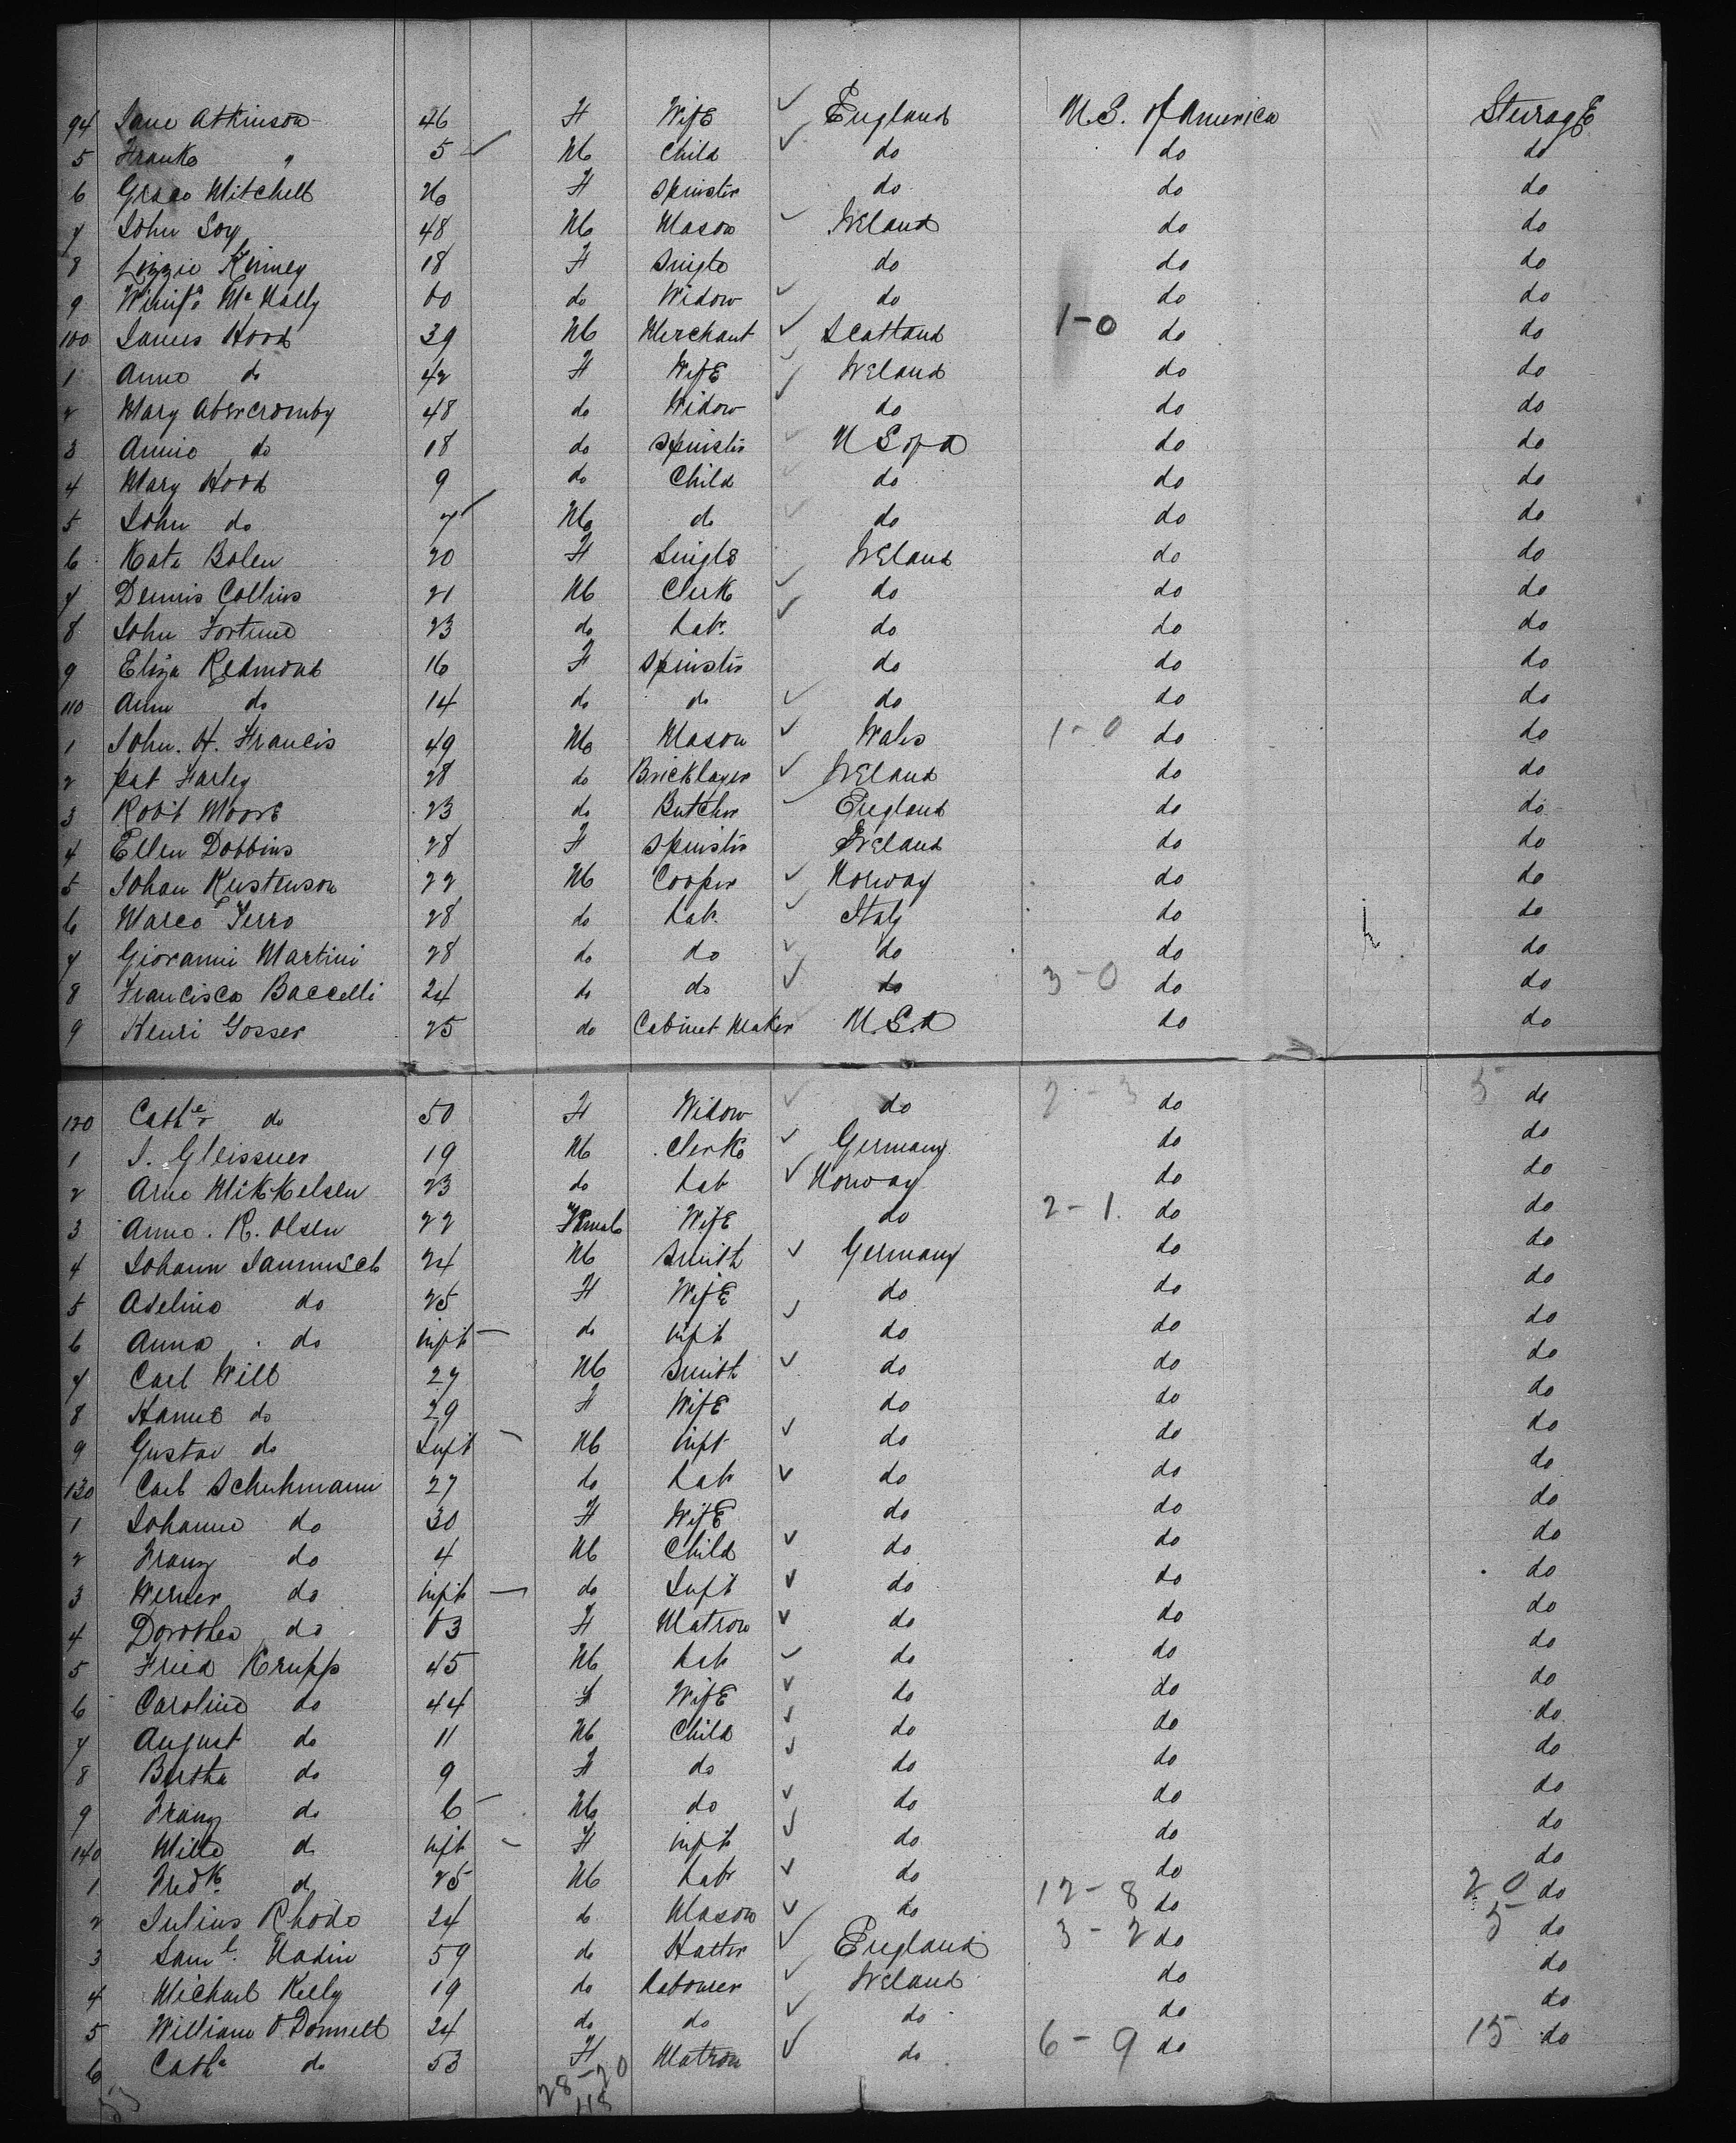 94 Jane Atkinson 46 F Wife England U.S. of America Steerage
5 Frank " 5 M Child do do do
6 Grace Mitchell 26 F Spinster do do do
7 John Soy 48 M Mason Ireland do do
8 Lizzie Kinney 18 F Single do do do
9 Winifd McNally 60 do Widow do do do
100 James Hood 39 M Merchant Scotland 1-0 do do
1 Anne do 42 F Wife Ireland do do
2 Mary Abercromby 48 do Widow do do do
3 Annie do 18 do Spinster U S of A do do
4 Mary Hood 9 do Child do do do
5 John do 7 M do do do do
6 Kate Bolen 20 F Single Ireland do do
7 Dennis Collins 21 M Clerk do do do
8 John Fortune 23 do Labr do do do
9 Eliza Redmond 16 F Spinster do do do
110 Ann do 14 do do do do do
1 John. H. Francis 49 M Mason Wales 1-0 do do
2 Pat Farley 28 do Bricklayer Ireland do do
3 Robt Moore 23 do Butcher England do do
4 Ellen Dobbins 28 F Spinster Ireland do do
5 Johan Kustenson 22 M Cooper Norway do do
6 Marco Ferro 28 do Labr Italy do do
7 Giovanni Martini 28 do do do do do
8 Francisco Baccelli 24 do do do 3-0 do do
9 Henri Gosser 25 do Cabinet Maker U.S.A do do
120 Cathe do 50 F Widow do 2-3 do 5 do
1 J. Gleissner 19 M Clerk Germany do do
2 Arne Mikkelsen 23 do Lab Norway do do
3 Anne. R. Olsen 22 Female Wife do 2-1 do do
4 Johann 24 M Smith Germany do do
5 Adeline do 25 F Wife do do do
6 Anna do Inft do Inft do do do
7 Carl Will 27 M Smith do do do
8 Hanne do 29 F Wife do do do
9 Gustav do Inft M Inft do do do
130 Carl Schuhmann 27 do Lab do do do
1 Johanne do 30 F Wife do do do
2 Franz do 4 M Child do do do
3 Werner do Inft do Inft do do do
4 Dorothea do 63 F Matron do do do
5 Fried Krupp 45 M Lab do do do
6 Caroline do 44 F Wife do do do
7 August do 11 M Child do do do
8 Bertha do 9 F do do do do
9 Franz do 6 M do do do do
140 do Inft F Inft do do do
1 Fredk do 25 M Labr do do do
2 Julius Rhode 24 do Mason do 12-8 do 20 do
3 Saml. Nadin 59 do Hatter England 3-2 do 5 do
4 Michael Kelly 19 do Labourer Ireland do do
5 William O'Donnell 24 do do do do do
6 Cathe do 53 F Matron do 6-9 do 15 do
28-20
48